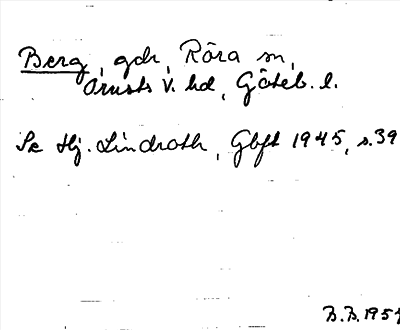 Berg, gdr, Röra sn,
Orusts V. hd, Göteb. l.
Se Hj. Lindroth, Gbft 1945, s. 39
B.B. 195